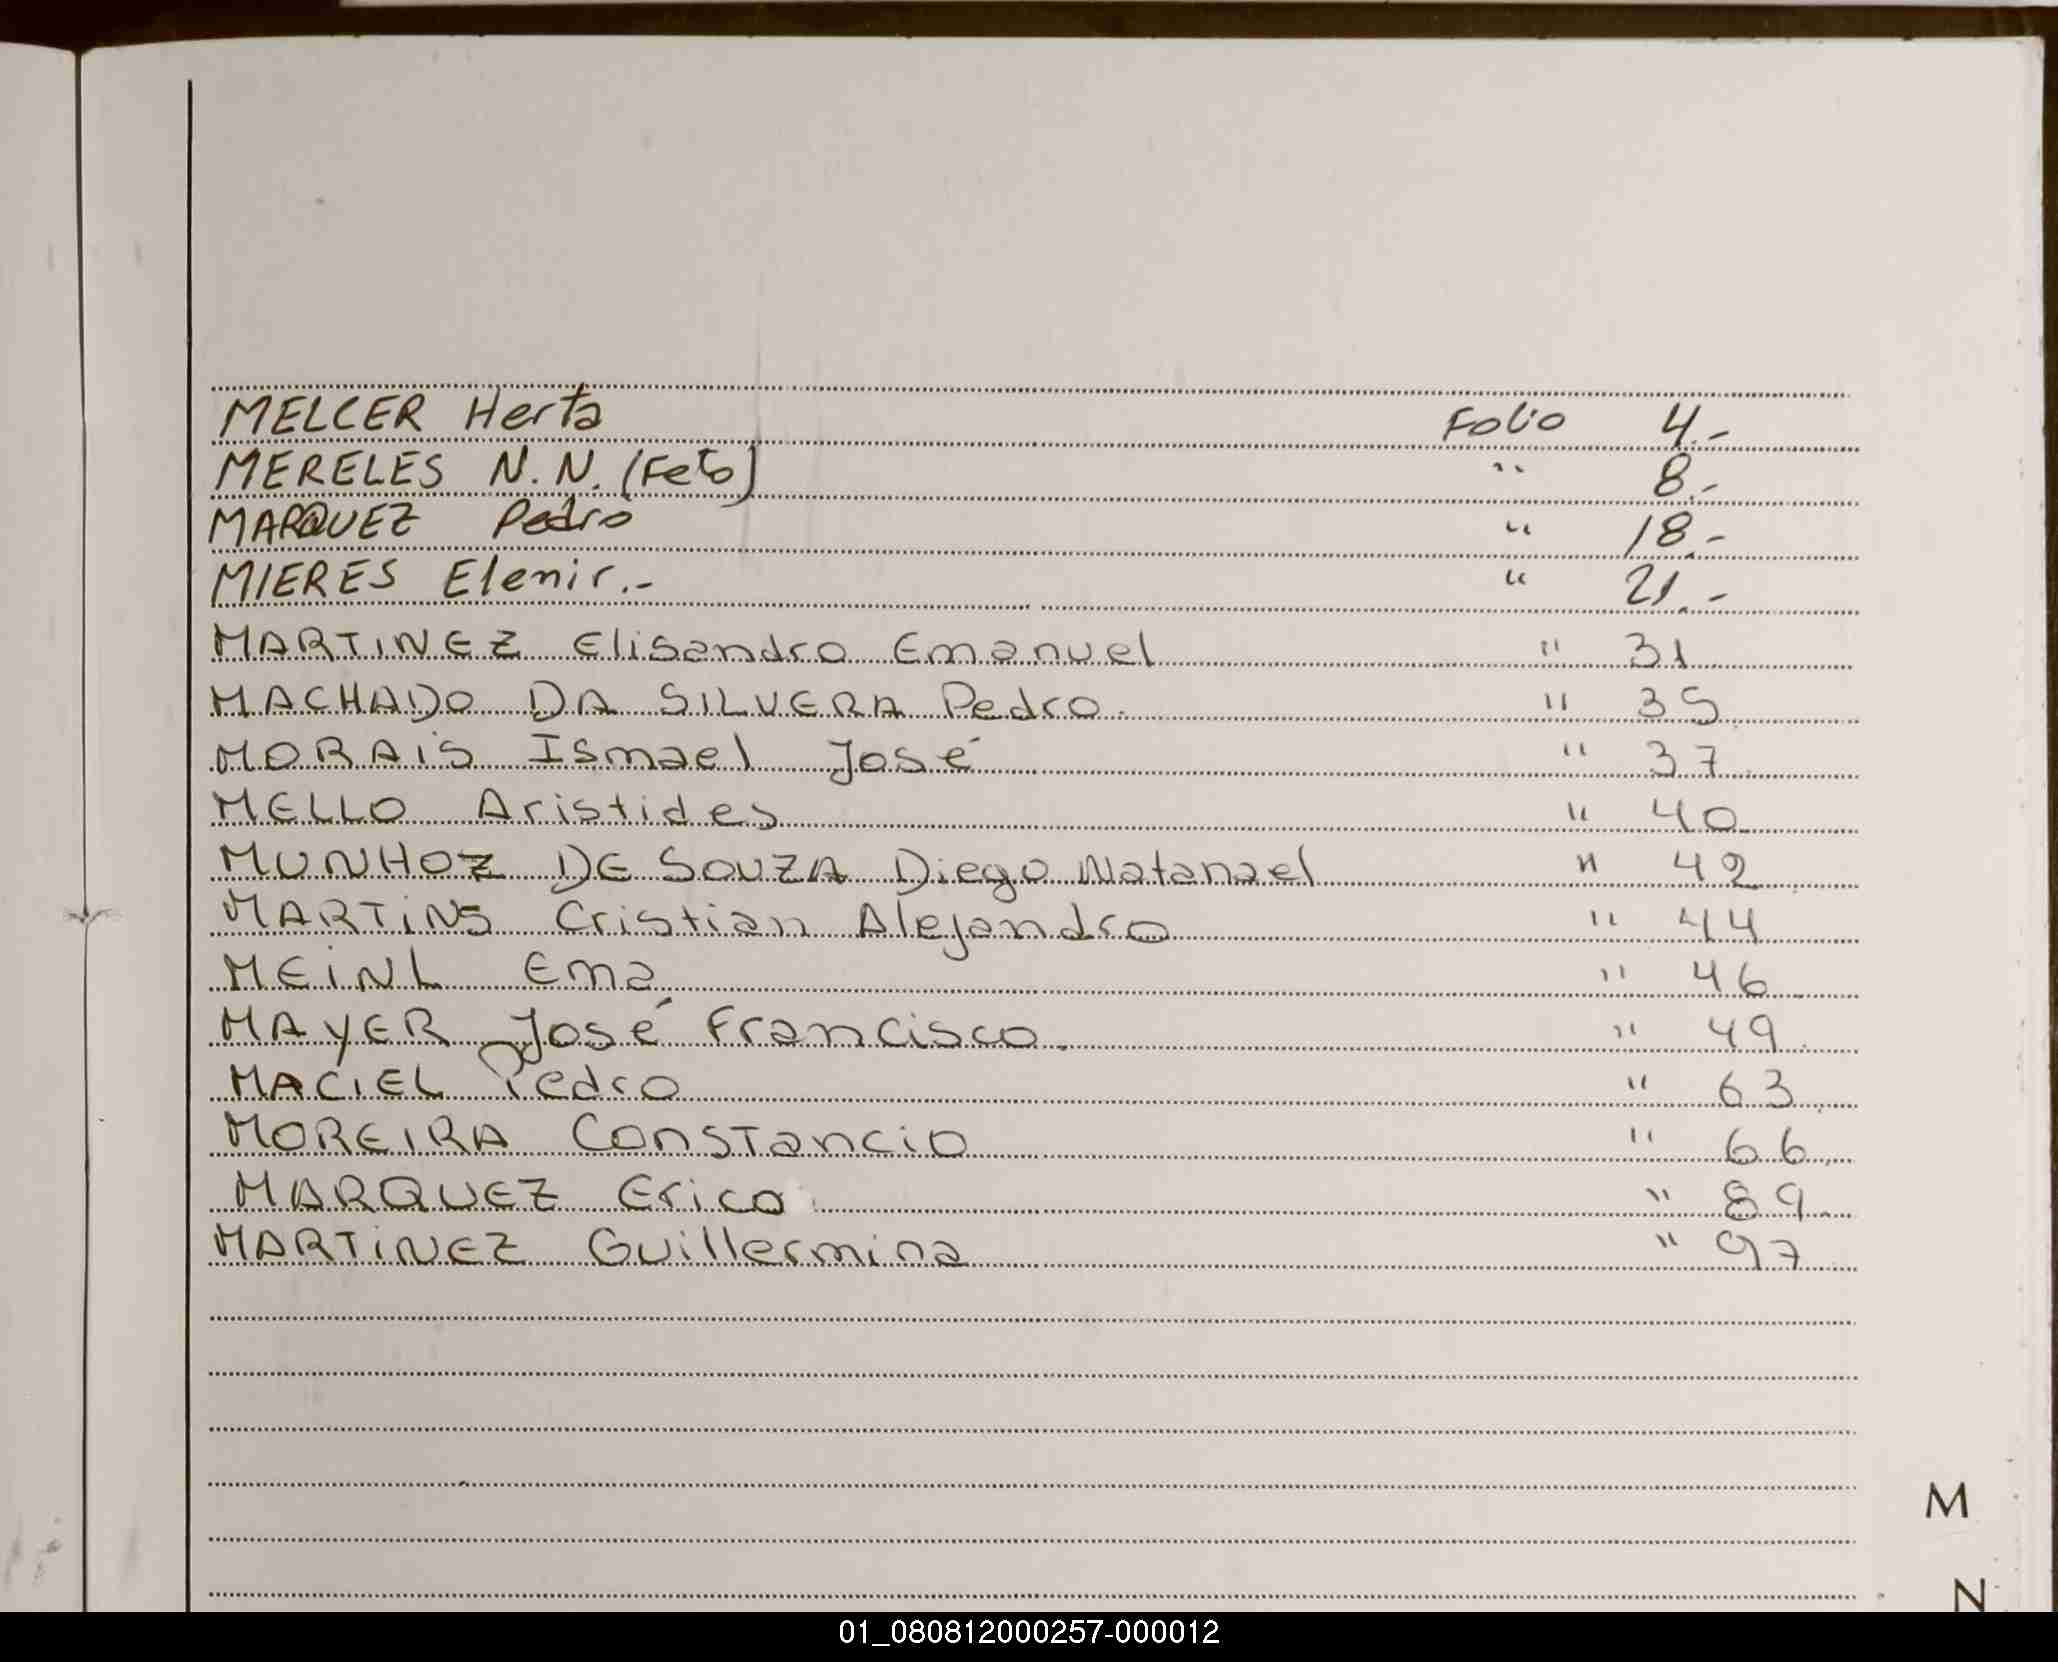 MELCER Herta Folio 4.-
MERELES N.N. (Feto) " 8.-
MARQUEZ Pedro " 18.-
MIERES Elenir.- " 21.-
MARTINEZ Elisandro Emanuel " 31
MACHADO DA SILVERA Pedro. " 35
MORAIS Ismael José " 37
MELLO Aristides " 40
MUNHOZ DE SOUZA Diego Natanael " 42
MARTINS Cristian Alejandro " 44
MEINL Ema " 46
MAYER José Francisco. " 49
MACIEL Pedro " 63
MOREIRA Constancio " 66
MARQUEZ Erico " 89
MARTINEZ Guillermina " 97
M
N
01_080812000257-000012